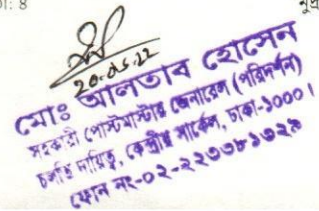 20.05.22
মোঃ আলতাব হোসেন
সহকারী পোস্টমাস্টার জেনারেল (পরিদর্শন)
চলতি দায়িত্ব, কেন্দ্রীয় সার্কেল, ঢাকা-১০০০।
ফোন নং-০২-২২৩৩৮১৬২৯